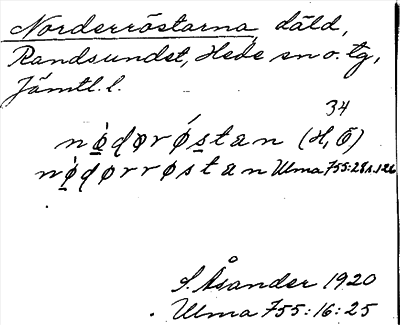 Norderröstarna, däld,
Randsundet, Hede sn o. tg,
Jämtl. l.
34
nø̀dørøstan (H, Ö)
nø̀dørrøstan Ulma 755:28 s.
S. Åsander 1920
Ulma 755:16:25